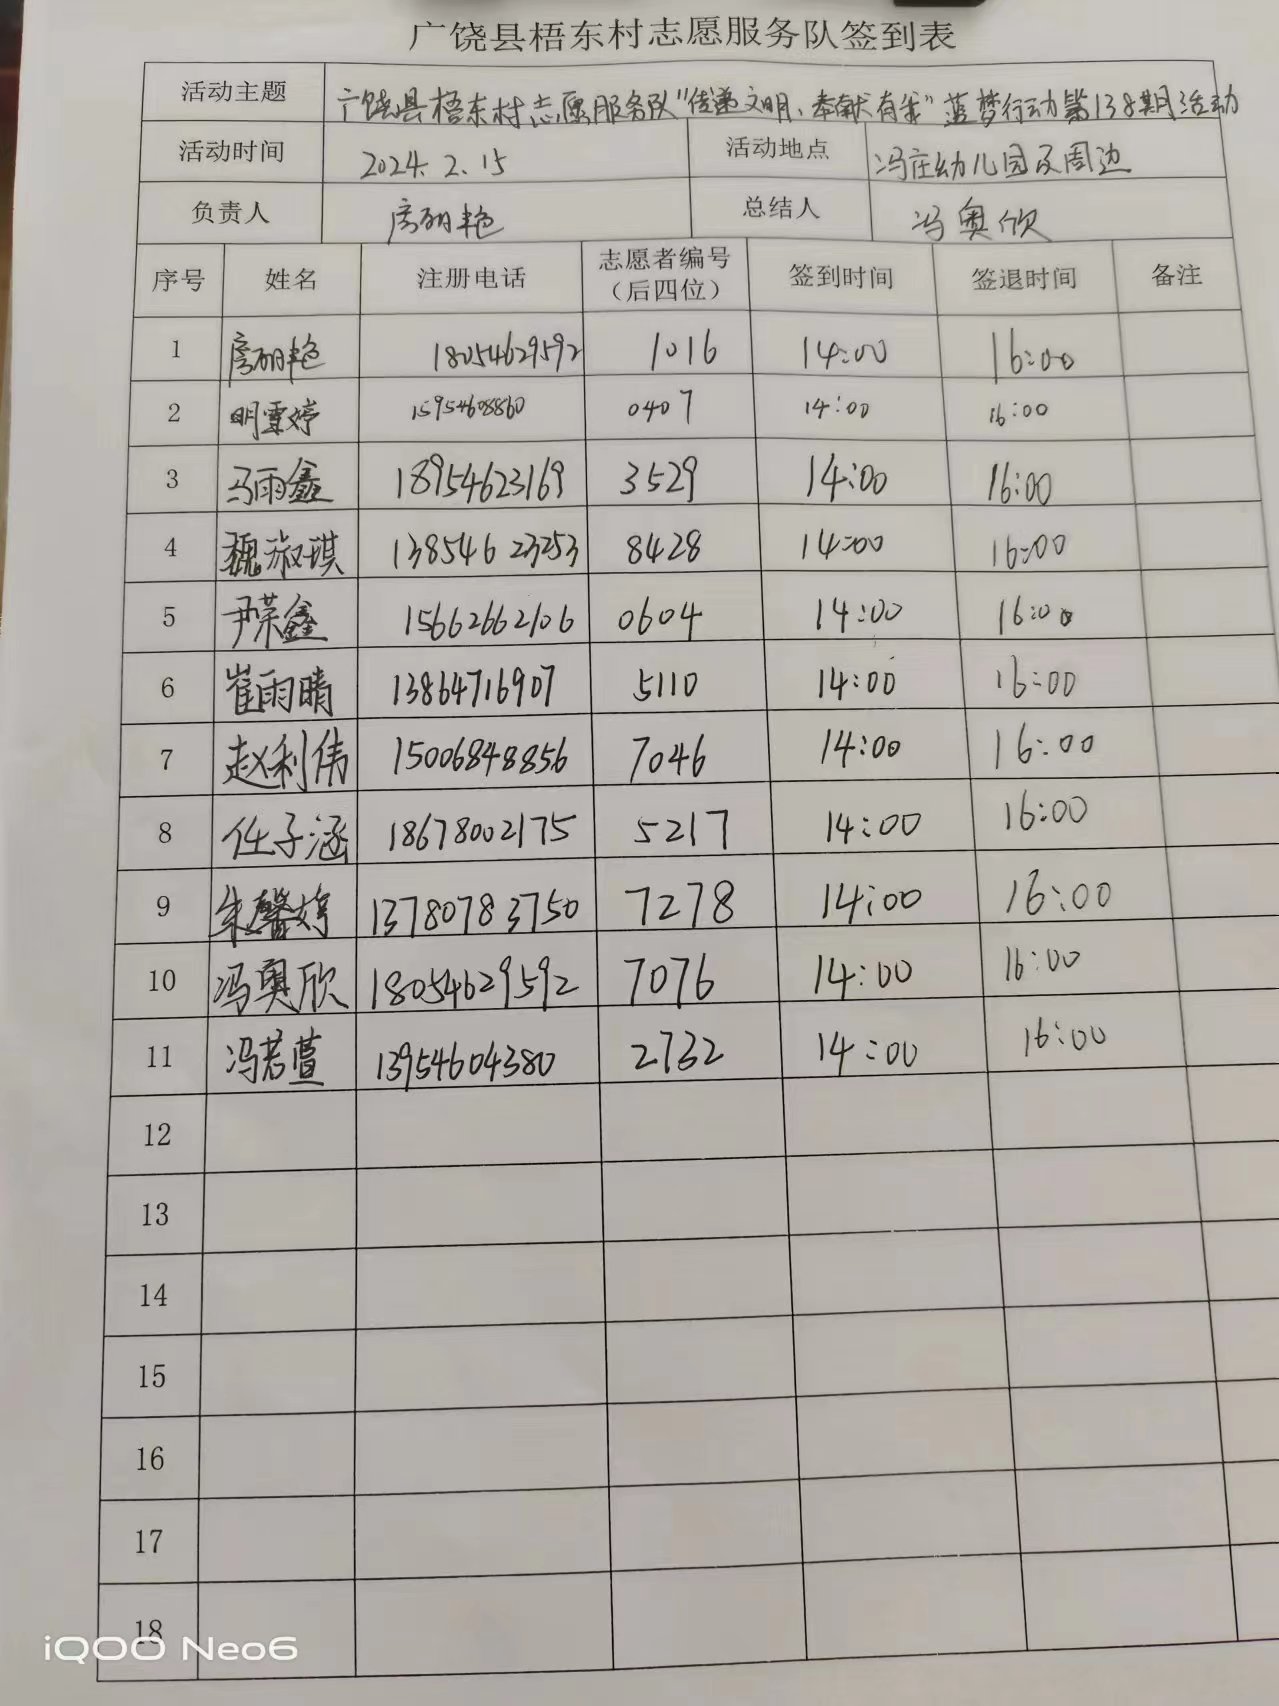 广饶县梧东村志愿服务队签到表
活动主题 广饶县梧东村志愿服务队"传递文明、奉献有我"蓝梦行动第138期活动
活动时间 2024.2.15 活动地点 冯庄幼儿园及周边
负责人 房丽艳 总结人 冯奥欣
序号 姓名 注册电话 志愿者编号（后四位） 签到时间 签退时间 备注
1 房丽艳 18054629592 1016 14:00 16:00
2 明雪婷 15954608860 0407 14:00 16:00
3 马雨鑫 18954623169 3529 14:00 16:00
4 魏淑琪 13854623253 8428 14:00 16:00
5 尹荣鑫 15662662106 0604 14:00 16:00
6 崔雨晴 13864716907 5110 14:00 16:00
7 赵利伟 15006848856 7046 14:00 16:00
8 任子涵 18678002175 5217 14:00 16:00
9 朱馨婷 13780783750 7278 14:00 16:00
10 冯奥欣 18054629592 7076 14:00 16:00
11 冯若萱 13954604380 2732 14:00 16:00
12
13
14
15
16
17
18
iQOO Neo6